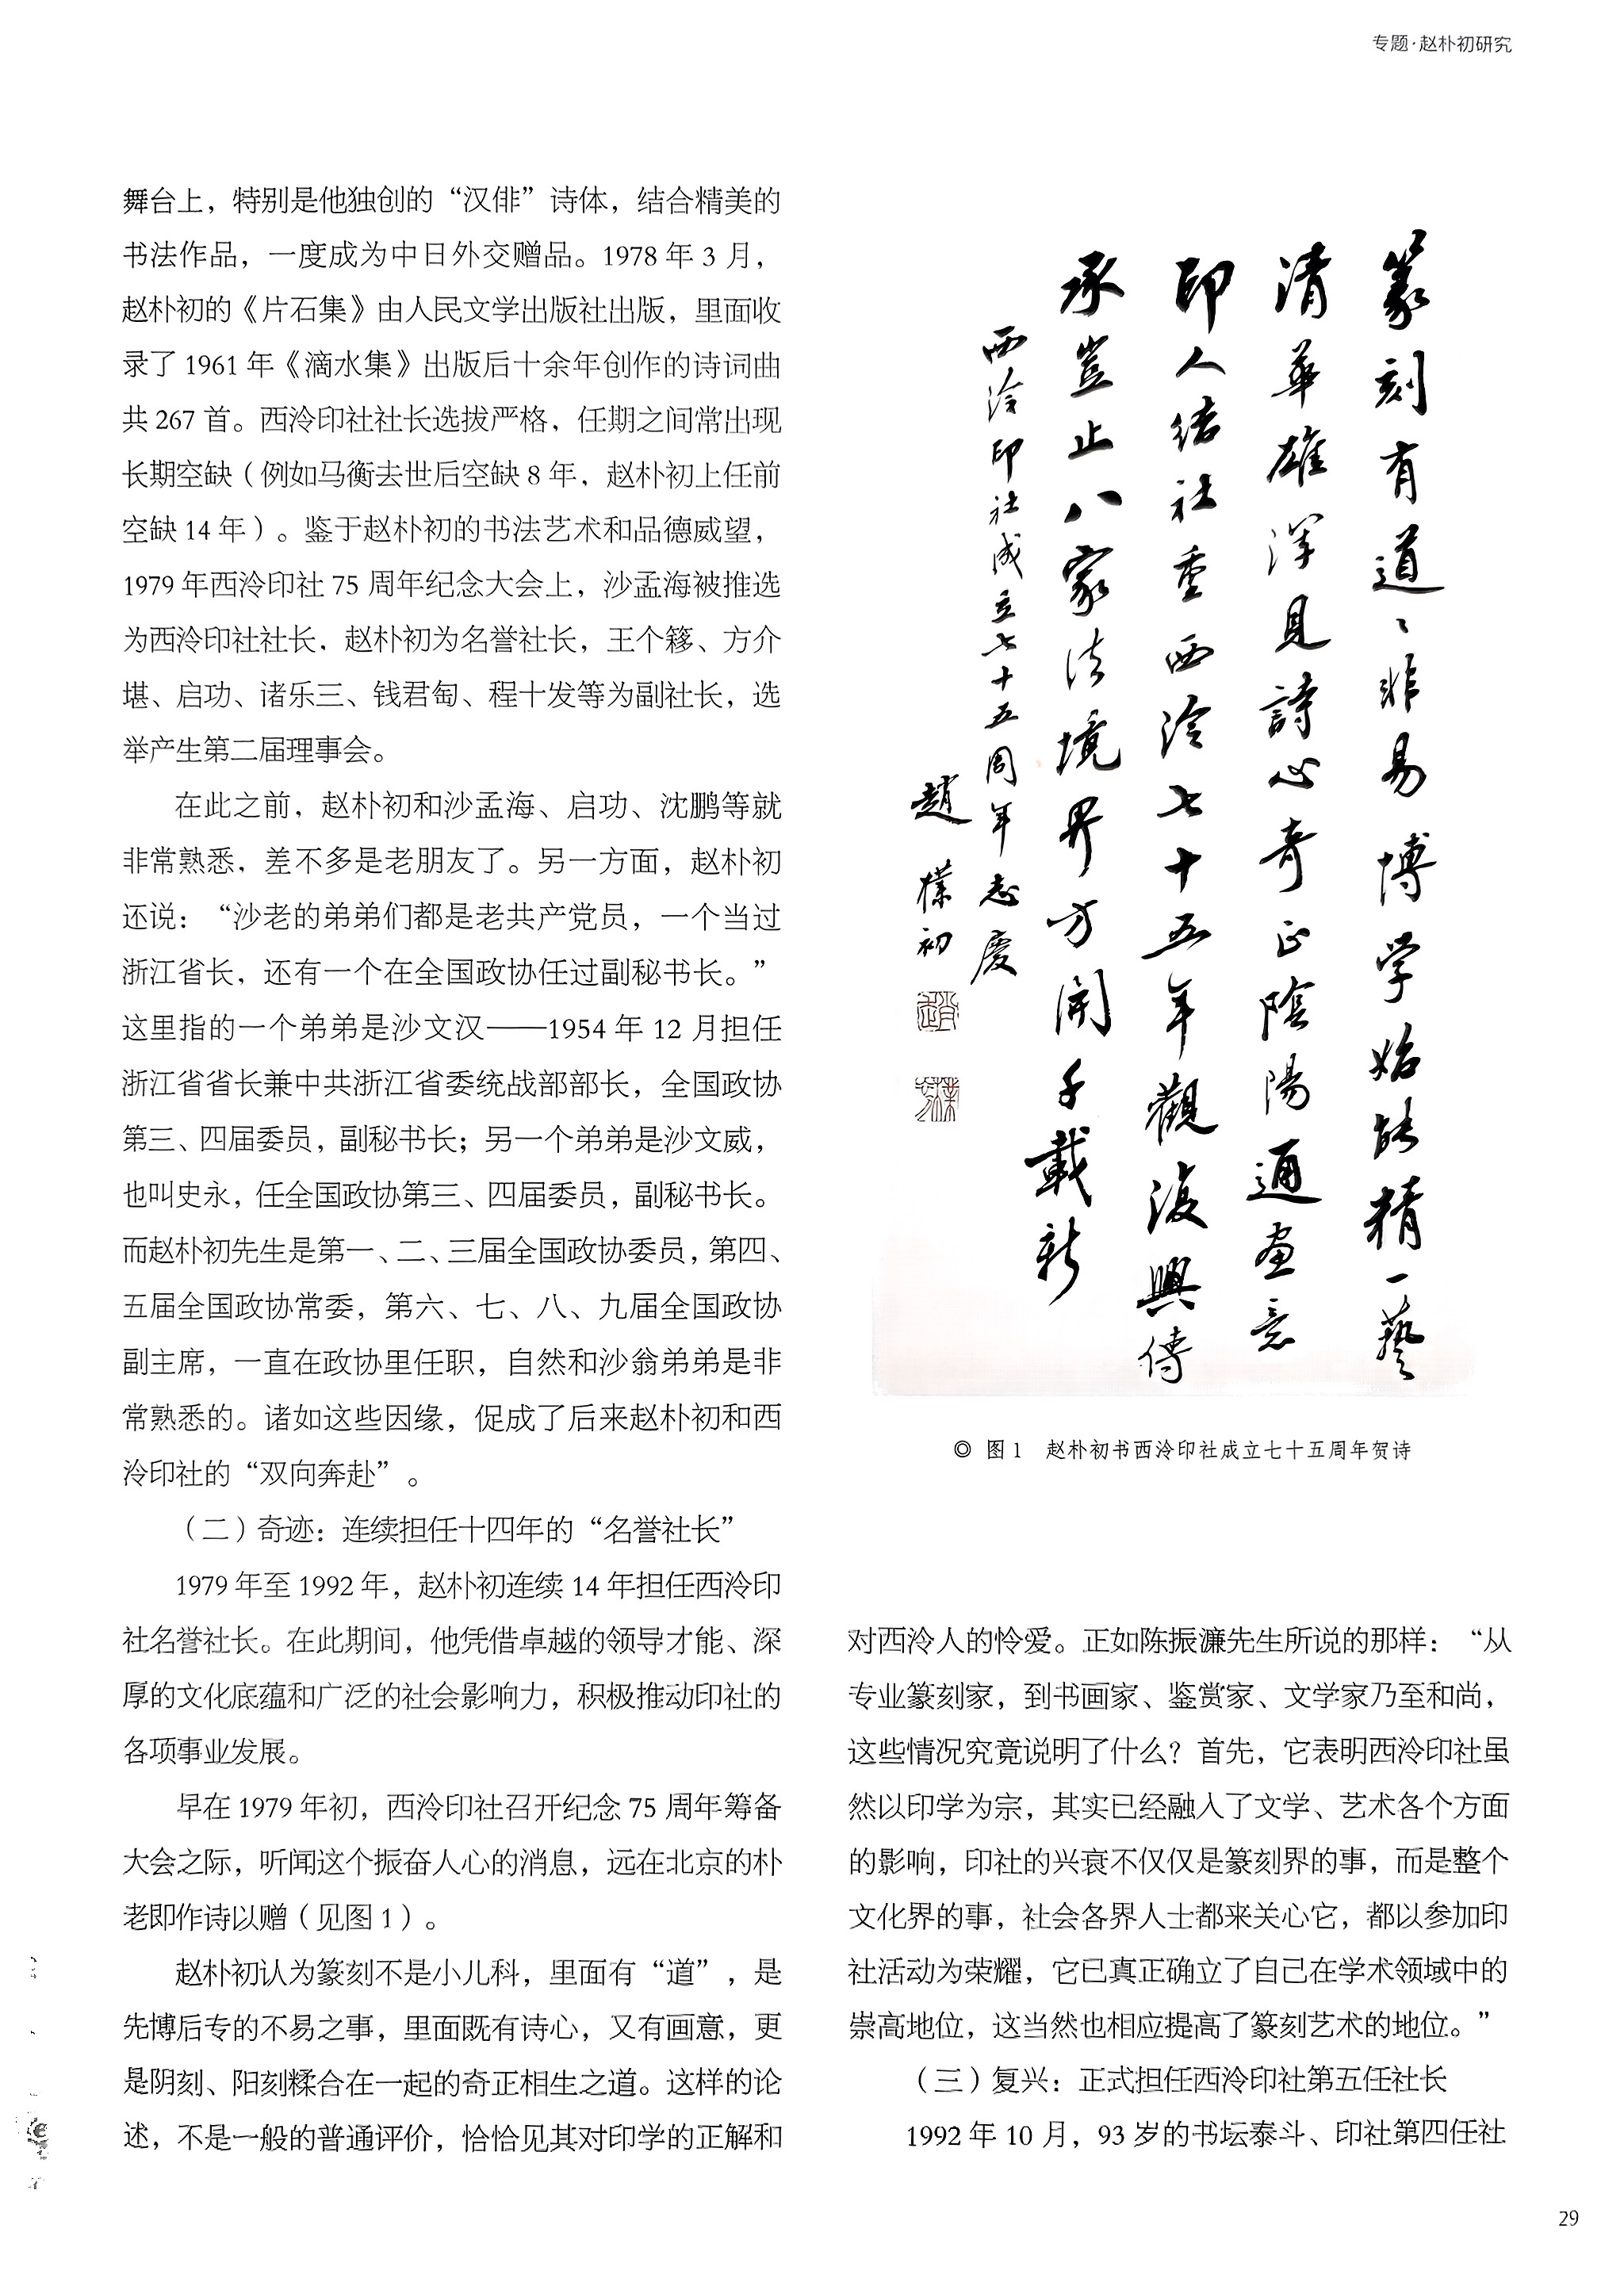 专题·赵朴初研究
舞台上，特别是他独创的“汉俳”诗体，结合精美的
书法作品，一度成为中日外交赠品。1978 年 3 月，
赵朴初的《片石集》由人民文学出版社出版，里面收
录了 1961 年《滴水集》出版后十余年创作的诗词曲
共 267 首。西泠印社社长选拔严格，任期之间常出现
长期空缺（例如马衡去世后空缺 8 年，赵朴初上任前
空缺 14 年）。鉴于赵朴初的书法艺术和品德威望，
1979 年西泠印社 75 周年纪念大会上，沙孟海被推选
为西泠印社社长，赵朴初为名誉社长，王个簃、方介
堪、启功、诸乐三、钱君匋、程十发等为副社长，选
举产生第二届理事会。
在此之前，赵朴初和沙孟海、启功、沈鹏等就
非常熟悉，差不多是老朋友了。另一方面，赵朴初
还说：“沙老的弟弟们都是老共产党员，一个当过
浙江省长，还有一个在全国政协任过副秘书长。”
这里指的一个弟弟是沙文汉——1954 年 12 月担任
浙江省省长兼中共浙江省委统战部部长，全国政协
第三、四届委员，副秘书长；另一个弟弟是沙文威，
也叫史永，任全国政协第三、四届委员，副秘书长。
而赵朴初先生是第一、二、三届全国政协委员，第四、
五届全国政协常委，第六、七、八、九届全国政协
副主席，一直在政协里任职，自然和沙翁弟弟是非
常熟悉的。诸如这些因缘，促成了后来赵朴初和西
泠印社的“双向奔赴”。
（二）奇迹：连续担任十四年的“名誉社长”
1979 年至 1992 年，赵朴初连续 14 年担任西泠印
社名誉社长。在此期间，他凭借卓越的领导才能、深
厚的文化底蕴和广泛的社会影响力，积极推动印社的
各项事业发展。
早在 1979 年初，西泠印社召开纪念 75 周年筹备
大会之际，听闻这个振奋人心的消息，远在北京的朴
老即作诗以赠（见图 1）。
赵朴初认为篆刻不是小儿科，里面有“道”，是
先博后专的不易之事，里面既有诗心，又有画意，更
是阴刻、阳刻糅合在一起的奇正相生之道。这样的论
述，不是一般的普通评价，恰恰见其对印学的正解和
篆刻有道道非易博学始能精一藝
清華雄渾見詩心奇正陰陽通画意
印人结社重西泠七十五年觀復興傳
承豈止八家法境界方開千載新
西泠印社成立七十五周年志慶
趙樸初
◎ 图 1 赵朴初书西泠印社成立七十五周年贺诗
对西泠人的怜爱。正如陈振濂先生所说的那样：“从
专业篆刻家，到书画家、鉴赏家、文学家乃至和尚，
这些情况究竟说明了什么？首先，它表明西泠印社虽
然以印学为宗，其实已经融入了文学、艺术各个方面
的影响，印社的兴衰不仅仅是篆刻界的事，而是整个
文化界的事，社会各界人士都来关心它，都以参加印
社活动为荣耀，它已真正确立了自己在学术领域中的
崇高地位，这当然也相应提高了篆刻艺术的地位。”
（三）复兴：正式担任西泠印社第五任社长
1992 年 10 月，93 岁的书坛泰斗、印社第四任社
29